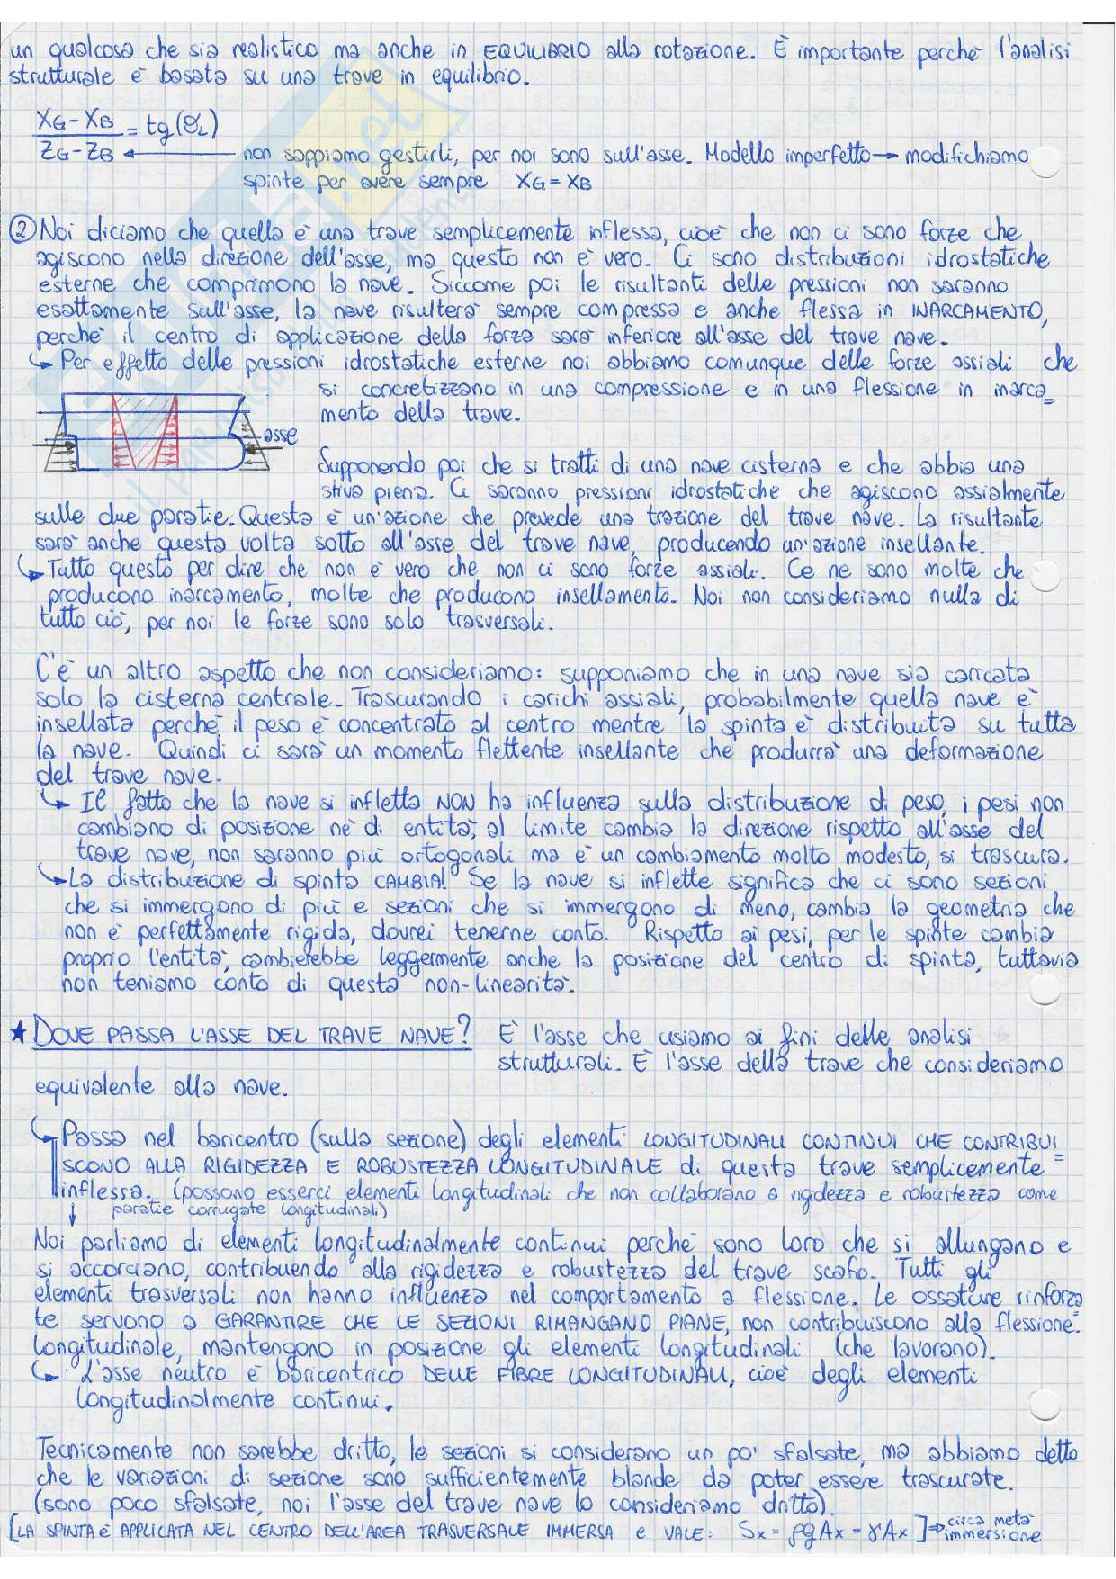 un qualcosa che sia realistico ma anche in EQUILIBRIO alla rotazione. È importante perché l'analisi
strutturale è basata su una trave in equilibrio.
XG - XB / ZG - ZB = tg(θL)
non sappiamo gestirli, per noi sono sull'asse. Modello imperfetto → modifichiamo
spinte per avere sempre XG = XB
② Noi diciamo che quella è una trave semplicemente inflessa, cioè che non ci sono forze che
agiscono nella direzione dell'asse, ma questo non è vero. Ci sono distribuzioni idrostatiche
esterne che comprimono la nave. Siccome poi le risultanti delle pressioni non saranno
esattamente sull'asse, la nave risulterà sempre compressa e anche flessa in INARCAMENTO,
perché il centro di applicazione della forza sarà inferiore all'asse del trave nave.
↳ Per effetto delle pressioni idrostatiche esterne noi abbiamo comunque delle forze assiali che
si concretizzano in una compressione e in una flessione in inarca=
mento della trave.
asse
Supponendo poi che si tratti di una nave cisterna e che abbia una
stiva piena. Ci saranno pressioni idrostatiche che agiscono assialmente
sulle due paratie. Questa è un'azione che prevede una trazione del trave nave. La risultante
sarà anche questa volta sotto all'asse del trave nave, producendo un'azione insellante.
↳ Tutto questo per dire che non è vero che non ci sono forze assiali. Ce ne sono molte che
producono inarcamento, molte che producono insellamento. Noi non consideriamo nulla di
tutto ciò, per noi le forze sono solo trasversali.
C'è un altro aspetto che non consideriamo: supponiamo che in una nave sia caricata
solo la cisterna centrale. Trascurando i carichi assiali, probabilmente quella nave è
insellata perché il peso è concentrato al centro mentre la spinta è distribuita su tutta
la nave. Quindi ci sarà un momento flettente insellante che produrrà una deformazione
del trave nave.
↳ Il fatto che la nave si infletta NON ha influenza sulla distribuzione di peso, i pesi non
cambiano di posizione né di entità, al limite cambia la direzione rispetto all'asse del
trave nave, non saranno più ortogonali ma è un cambiamento molto modesto, si trascura.
↳ La distribuzione di spinta CAMBIA! Se la nave si inflette significa che ci sono sezioni
che si immergono di più e sezioni che si immergono di meno, cambia la geometria che
non è perfettamente rigida, dovrei tenerne conto. Rispetto ai pesi, per le spinte cambia
proprio l'entità, cambierebbe leggermente anche la posizione del centro di spinta, tuttavia
non teniamo conto di questa non-linearità.
★ DOVE PASSA L'ASSE DEL TRAVE NAVE? È l'asse che usiamo ai fini delle analisi
strutturali. È l'asse della trave che consideriamo
equivalente alla nave.
↳ Passa nel baricentro (sulla sezione) degli elementi LONGITUDINALI CONTINUI CHE CONTRIBUI=
SCONO ALLA RIGIDEZZA E ROBUSTEZZA LONGITUDINALE di questa trave semplicemente
inflessa. (possono esserci elementi longitudinali che non collaborano a rigidezza e robustezza come
paratie corrugate longitudinali)
Noi parliamo di elementi longitudinalmente continui perché sono loro che si allungano e
si accorciano, contribuendo alla rigidezza e robustezza del trave scafo. Tutti gli
elementi trasversali non hanno influenza nel comportamento a flessione. Le ossature rinforza=
te servono a GARANTIRE CHE LE SEZIONI RIMANGANO PIANE, non contribuiscono alla flessione
longitudinale, mantengono in posizione gli elementi longitudinali (che lavorano).
↳ L'asse neutro è baricentrico DELLE FIBRE LONGITUDINALI, cioè degli elementi
longitudinalmente continui.
Tecnicamente non sarebbe dritto, le sezioni si considerano un po' sfalsate, ma abbiamo detto
che le variazioni di sezione sono sufficientemente blande da poter essere trascurate.
(sono poco sfalsate, noi l'asse del trave nave lo consideriamo dritto).
[LA SPINTA È APPLICATA NEL CENTRO DELL'AREA TRASVERSALE IMMERSA e VALE: Sx = ρgAx = γAx] ⇒ circa metà
immersione